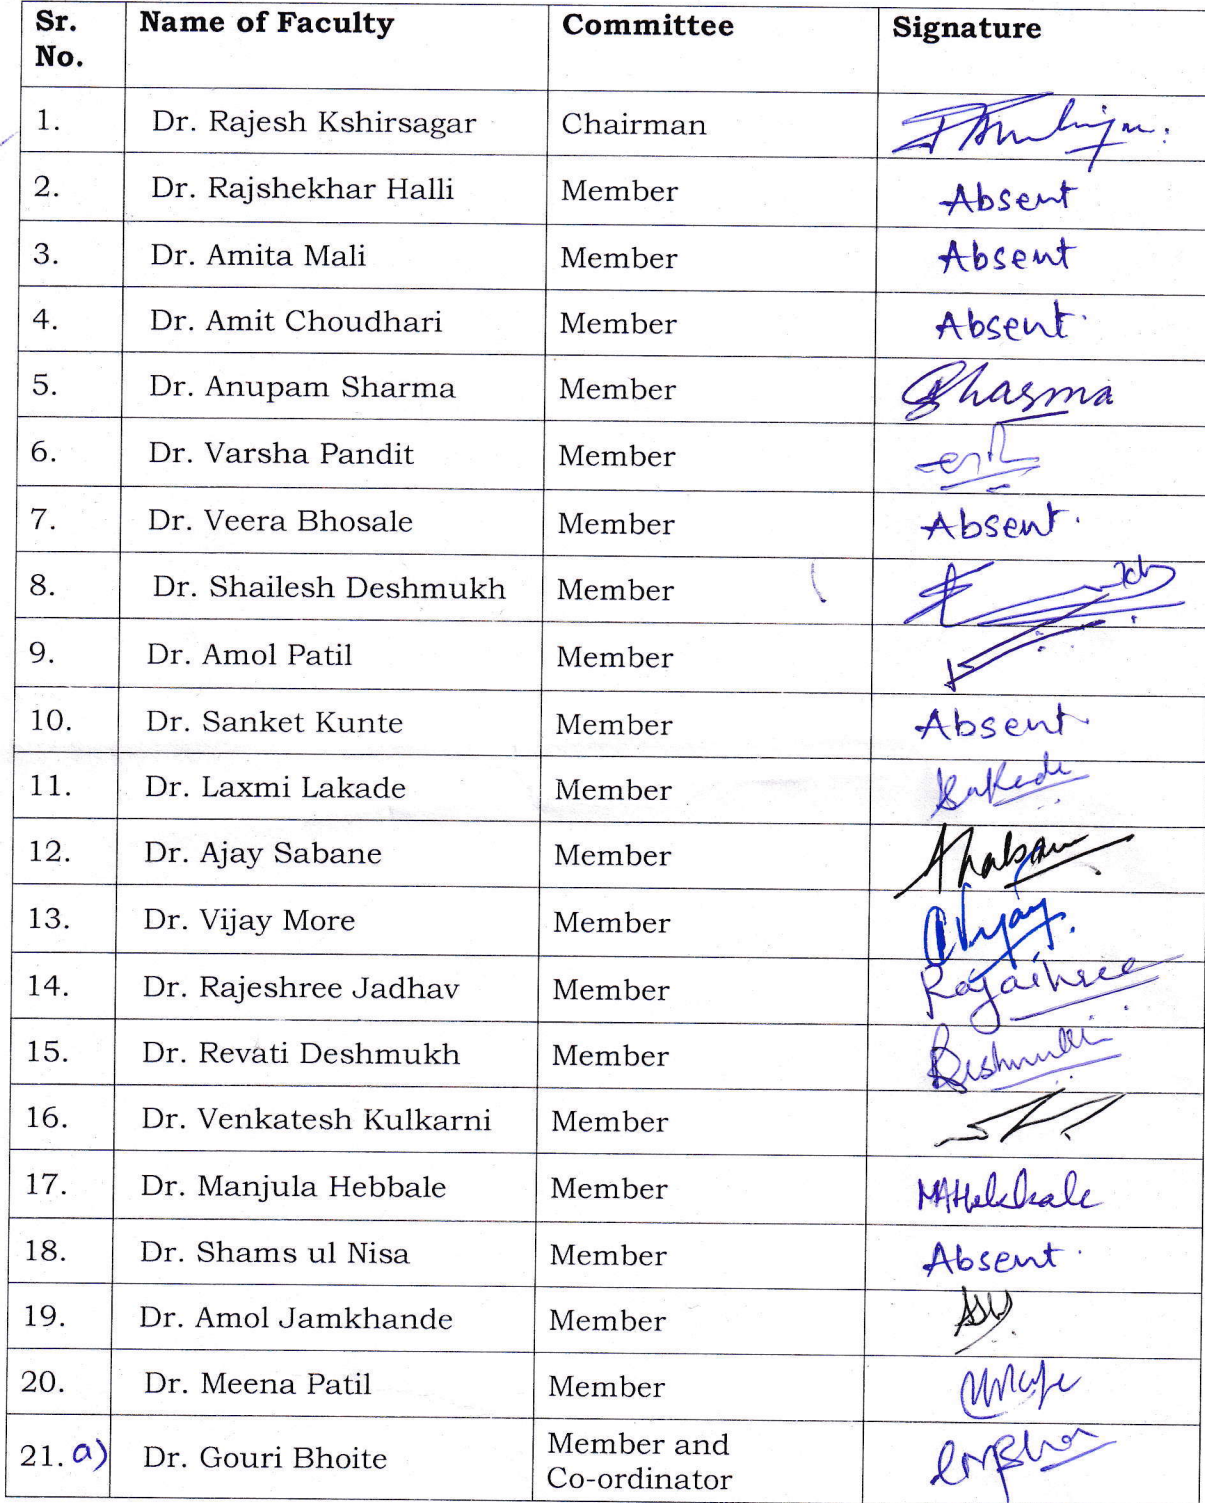 Sr. No. Name of Faculty Committee Signature
1. Dr. Rajesh Kshirsagar Chairman
2. Dr. Rajshekhar Halli Member Absent
3. Dr. Amita Mali Member Absent
4. Dr. Amit Choudhari Member Absent.
5. Dr. Anupam Sharma Member
6. Dr. Varsha Pandit Member
7. Dr. Veera Bhosale Member Absent.
8. Dr. Shailesh Deshmukh Member
9. Dr. Amol Patil Member
10. Dr. Sanket Kunte Member Absent.
11. Dr. Laxmi Lakade Member
12. Dr. Ajay Sabane Member
13. Dr. Vijay More Member
14. Dr. Rajeshree Jadhav Member Rajashree
15. Dr. Revati Deshmukh Member
16. Dr. Venkatesh Kulkarni Member
17. Dr. Manjula Hebbale Member
18. Dr. Shams ul Nisa Member Absent.
19. Dr. Amol Jamkhande Member
20. Dr. Meena Patil Member
21. a) Dr. Gouri Bhoite Member and
Co-ordinator